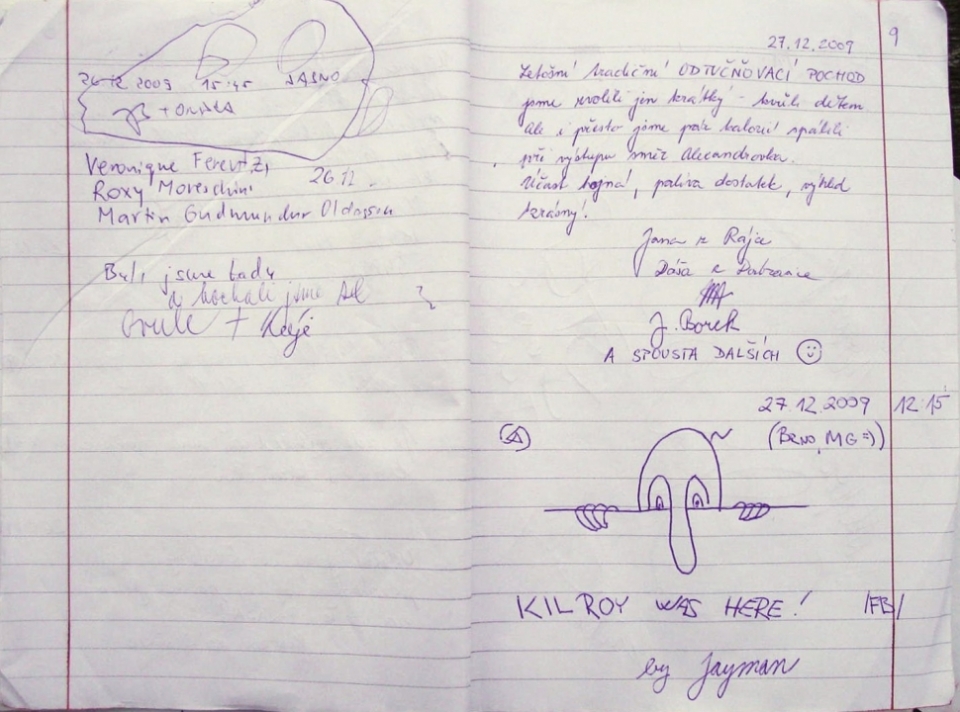 26.12 2009 15:45 JASNO
Veronique
Roxy 26.12.
Martin Gudmundur
Byli jsme tady
a kochali jsme se
27.12.2009
9
Letošní tradiční ODTUČŇOVACÍ POCHOD
jsme zvolili jen krátký - kvůli dětem
ale i přesto jsme pár kalorií spálili
při výstupu směr Alexandrovka.
Účast hojná!, paliva dostatek, výhled
krásný!
Jana z Rájce
Dáša z
J. Borek
A SPOUSTA DALŠÍCH
27.12.2009 12:15
(BRNO, MG =))
KILROY WAS HERE! /FB/
by Jayman